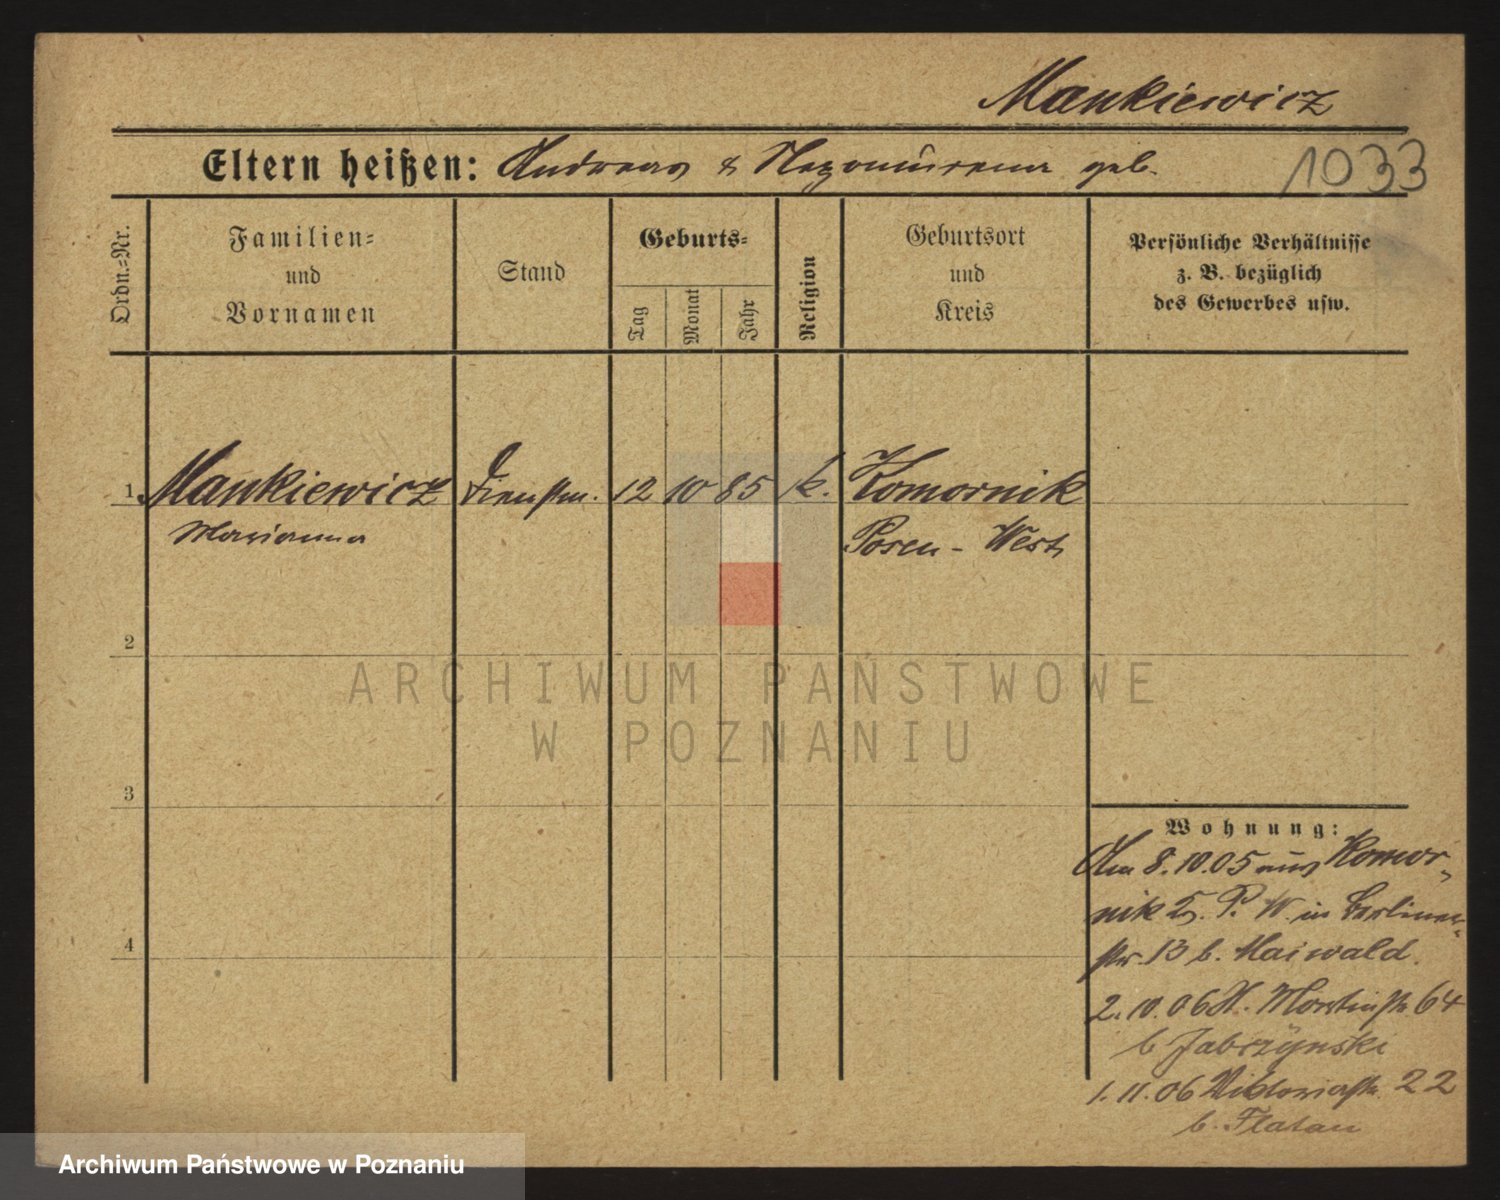 Mankiewicz
Eltern heißen: Andreas & Nepomucena geb.
1033
Ordn.-Nr.
Familien-
und
Vornamen
Stand
Geburts-
Tag
Monat
Jahr
Religion
Geburtsort
und
Kreis
Persönliche Verhältnisse
z. B. bezüglich
des Gewerbes usw.
1 Mankiewicz Dienstm. 12 10 85 k. Komornik
Marianna Posen - West
2
ARCHIWUM PAŃSTWOWE
W POZNANIU
3
4
Wohnung:
Am 8.10.05 aus Komor-
nik P. W. in Berliner-
str. 13 b. Maiwald.
2.10.06 H. Martinstr. 64
b Jabczynski
1.11.06 Viktoriastr. 22
b. Flatau
Archiwum Państwowe w Poznaniu